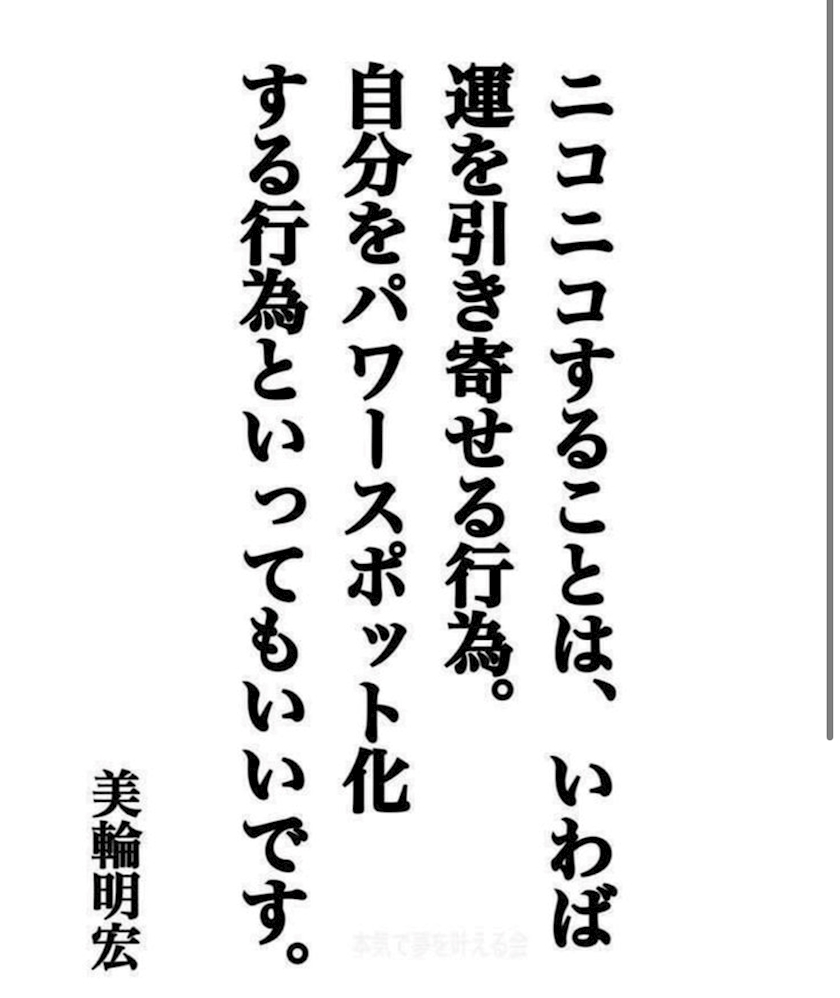 ニコニコすることは、いわば
運を引き寄せる行為。
自分をパワースポット化
する行為といってもいいです。
美輪明宏
本気で夢を叶える会